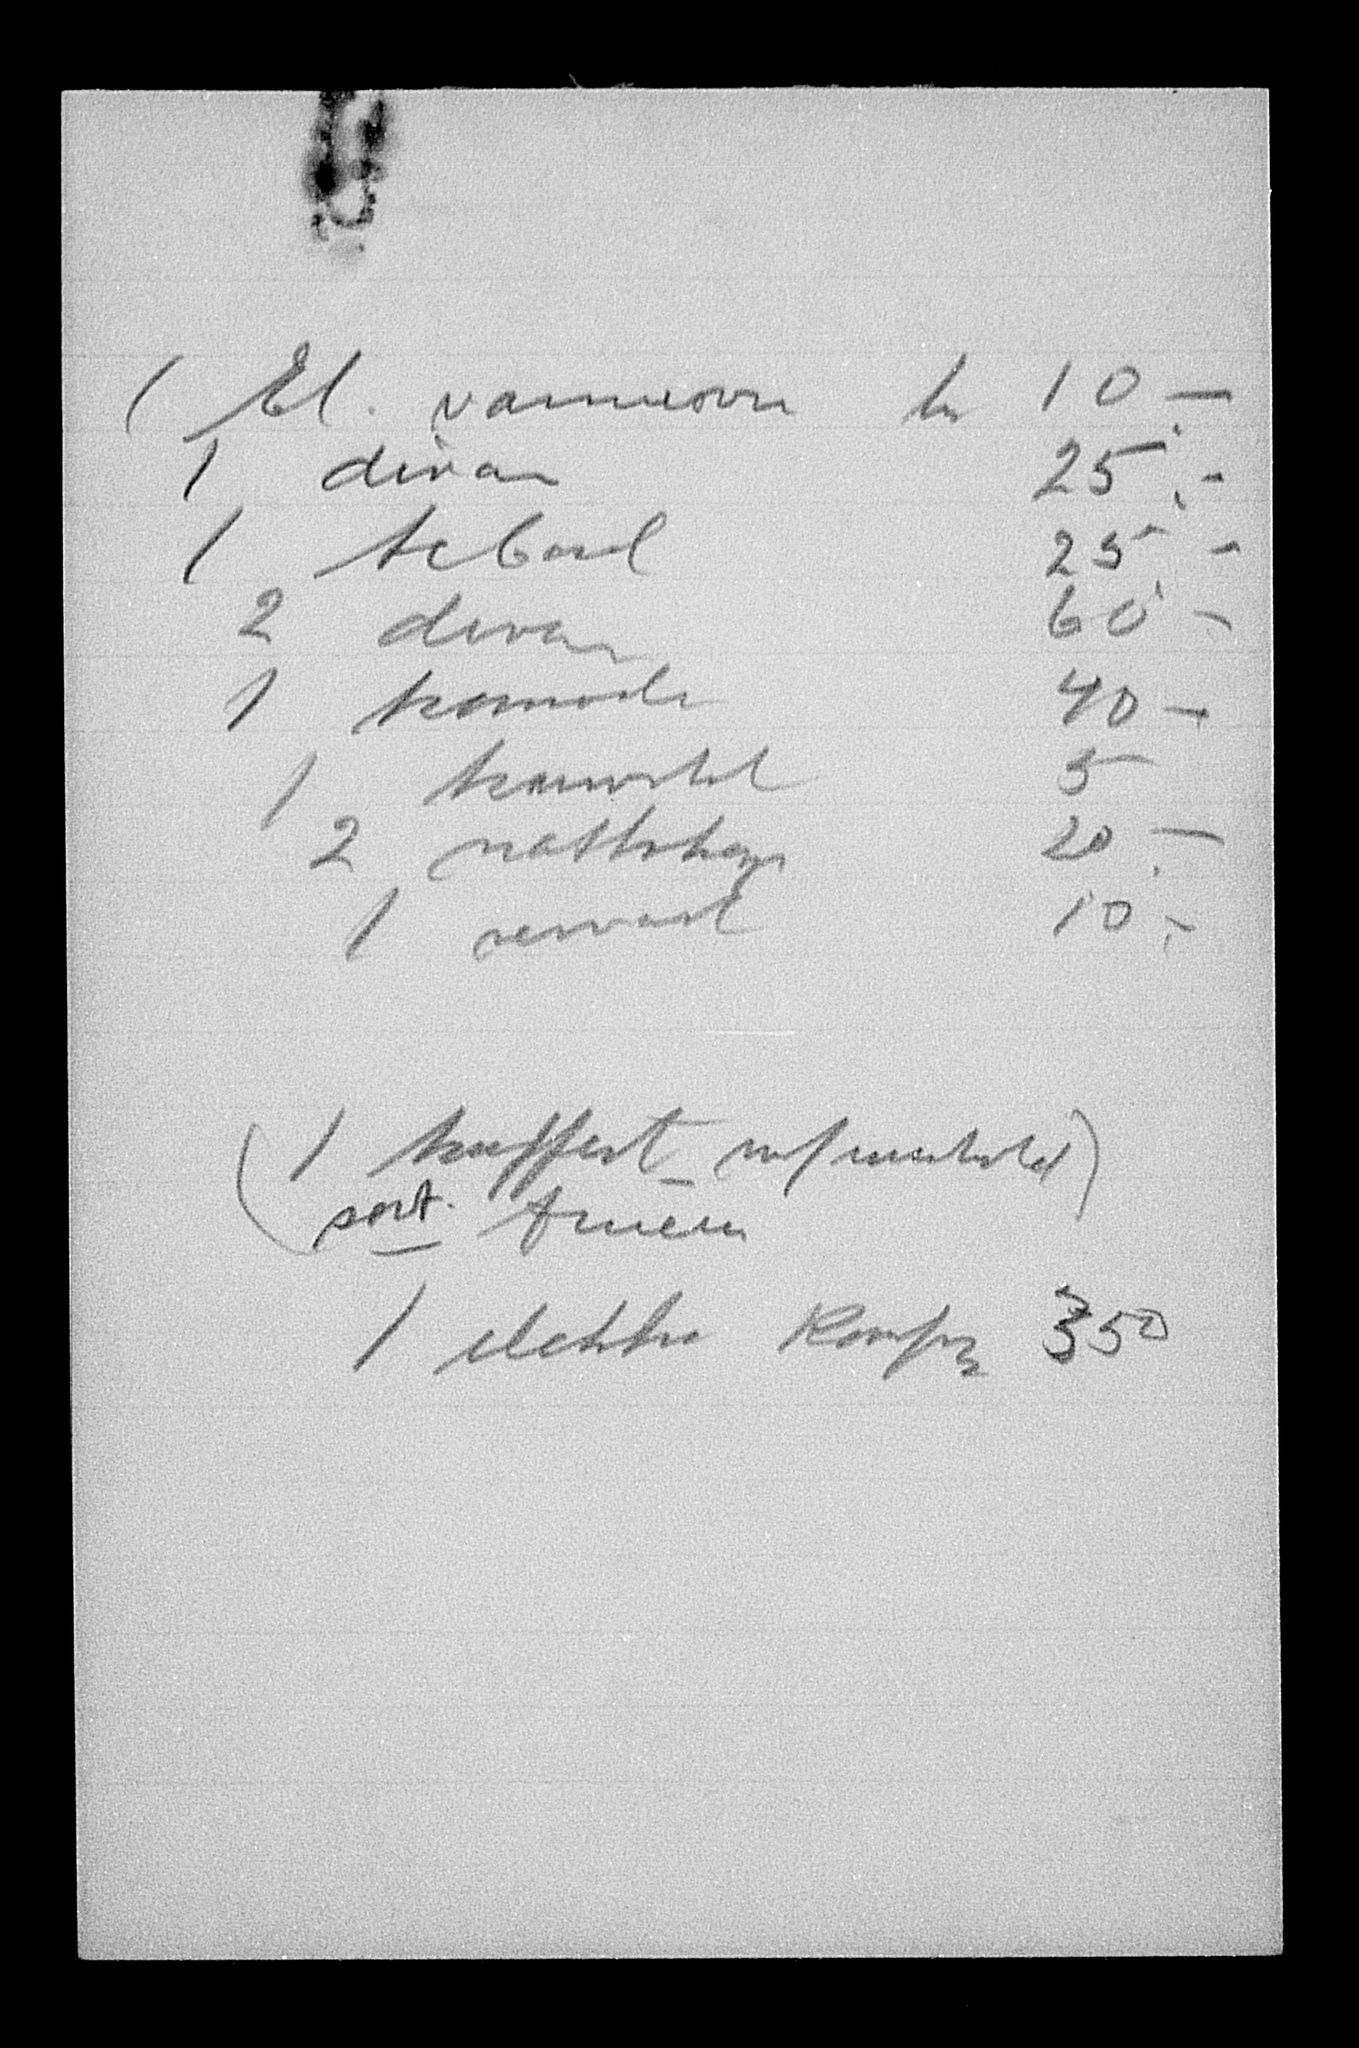 1 El. varmeovn kr 10.-
1 divan 25.-
1 tebord 25.-
2 divan 60.-
1 komode 40.-
1 5
2 nattskap 20.-
1 servant 10.-
(1 kuffert m/innhold)
sort.
1 elektr. komfyr 350